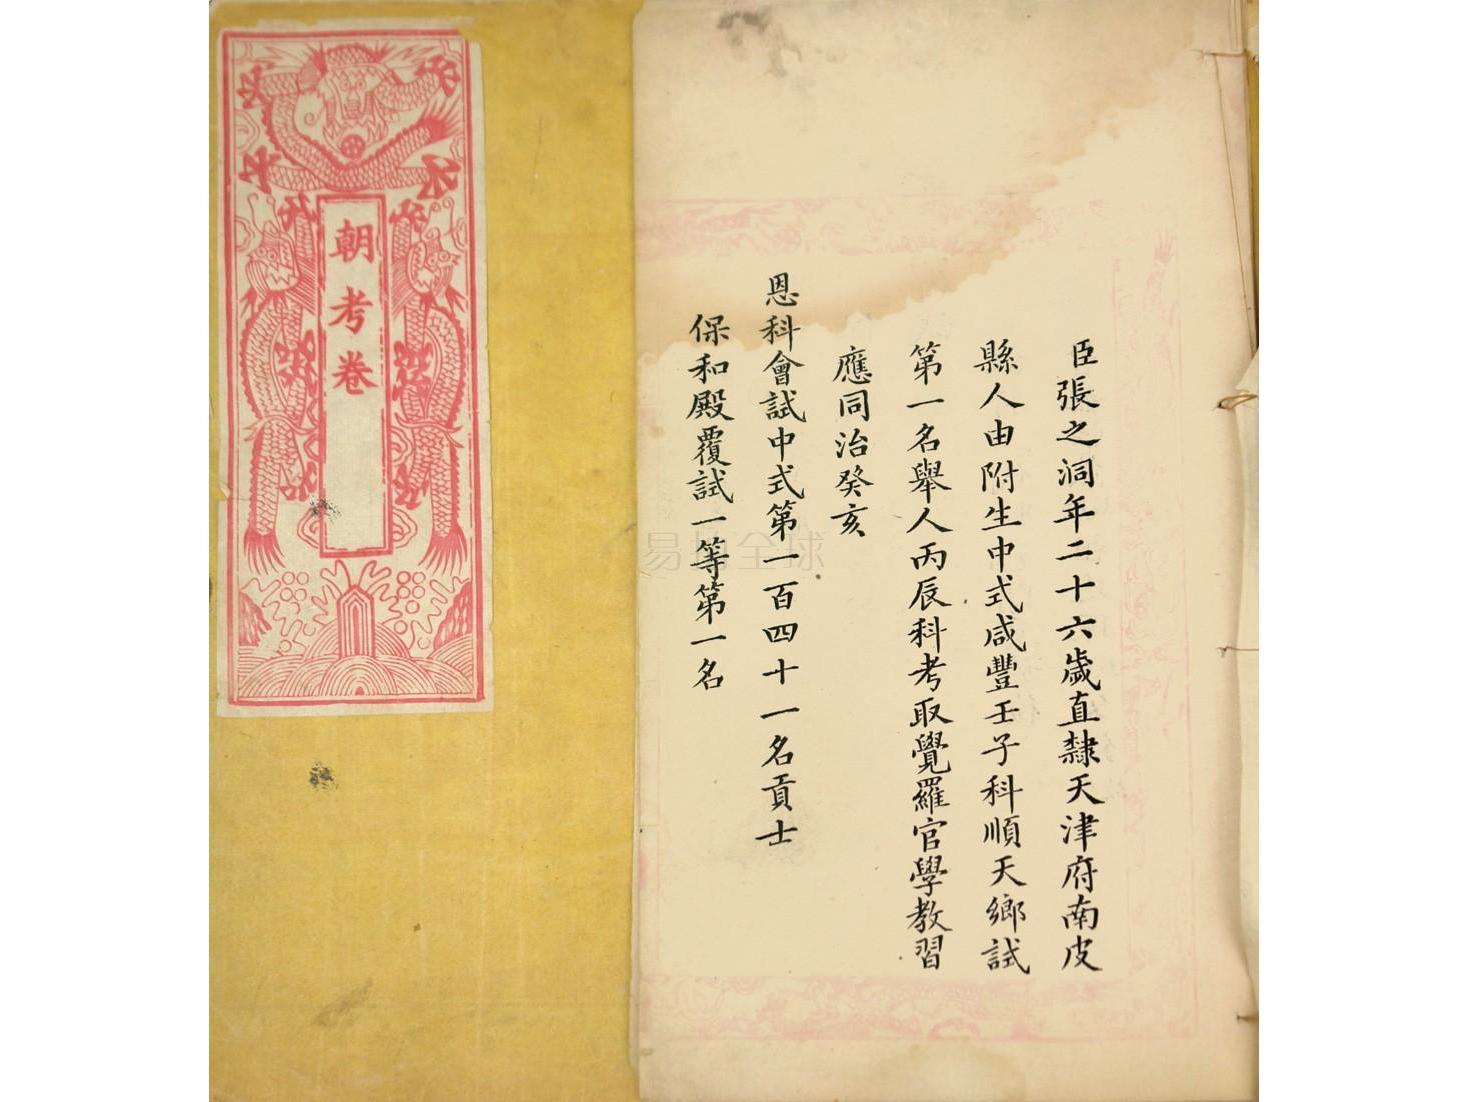 臣張之洞年二十六歲直隸天津府南皮
縣人由附生中式咸豐壬子科順天鄉試
第一名舉人丙辰科考取覺羅官學教習
應同治癸亥
恩科會試中式第一百四十一名貢士
保和殿覆試一等第一名
朝考卷
易拍全球